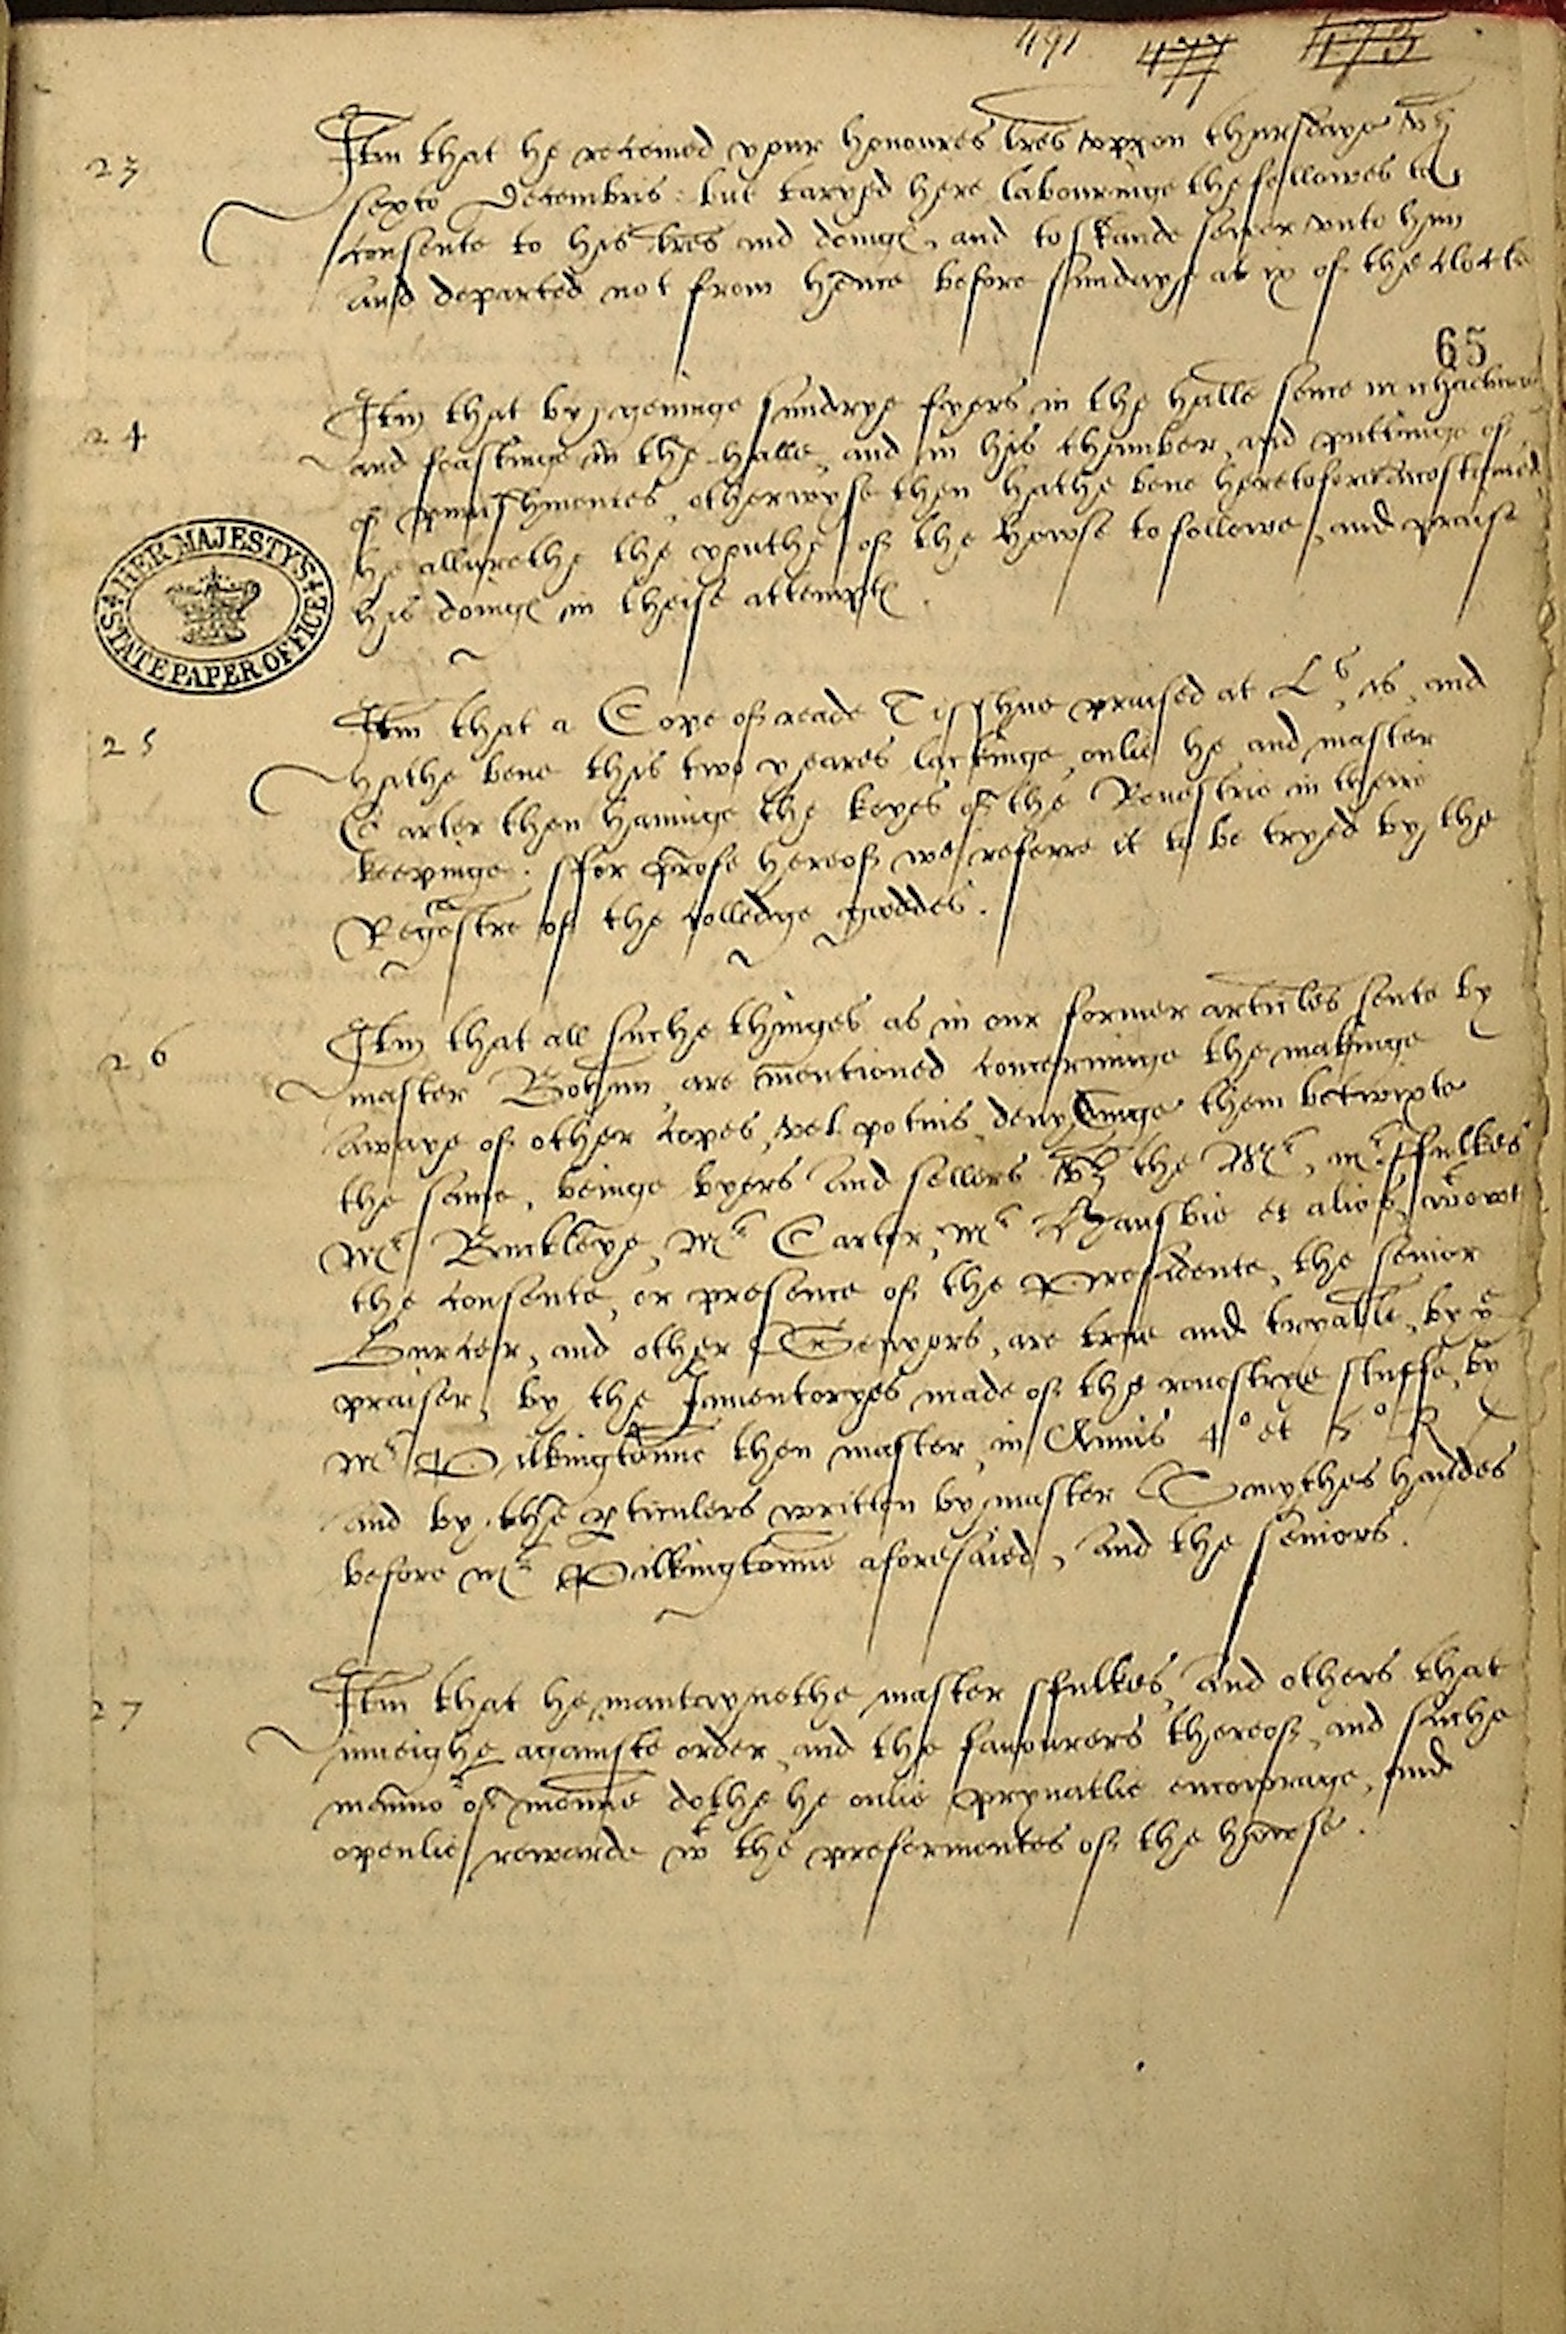 491 477 473
23 Itm that he receiued your honoures lres vppon thursdaye
sexto Decembris: but taryed here labouringe the fellowes to
consente to his lres and doings, and to stande seuer vnto him
and departed not from hence before sundaye at ix of the clocke
65
24 Itm that by geuinge sundrye fyers in the halle some in
and feastinge in the halle, and in his chamber, and puttinge of
of punishmentes, otherwyse then hathe bene heretofore accostumed
he allurethe the youthe of the howse to followe, and praise
his doings in theise attempts.
HER MAJESTY'S STATE PAPER OFFICE
25 Itm that a Cope of reade Tisshue praised at and
hathe bene this two yeares lackinge, onlie he and master
Carter then hauinge the keyes of the Reuestrie in theire
keepinge. ffor profe hereof we referre it to be tryed by the
Regestre of the colledge gooddes.
26 Itm that all suche thinges as in our former articles sente by
master are mentioned concerninge the makinge
awaye of other copes, vel potius deuydinge them betwixte
the same, beinge byers and sellers the Mr, mr ffulkes
Mr Buckleye, Mr Carter, Mr Hansbie et alios, wtowt
the consente, or presence of the Presidente, the senior
Burcer, and other Senyors, are trew and tryable, by ye
praiser, by the Inuentoryes made of the reuestrye stuffe, by
Mr Pilkingtonne then master, in Annis 4o et 5o R
and by the pticulers written by master Smythes handes
before Mr Pilkingtonne aforesaied, and the seniors.
27 Itm that he mantaynethe master ffulkes, and others that
inueighe againste order, and the favourers thereof, and suche
manno of menne dothe he onlie pryuatlie encourage, and
openlie rewarde wt the prefermentes of the howse.